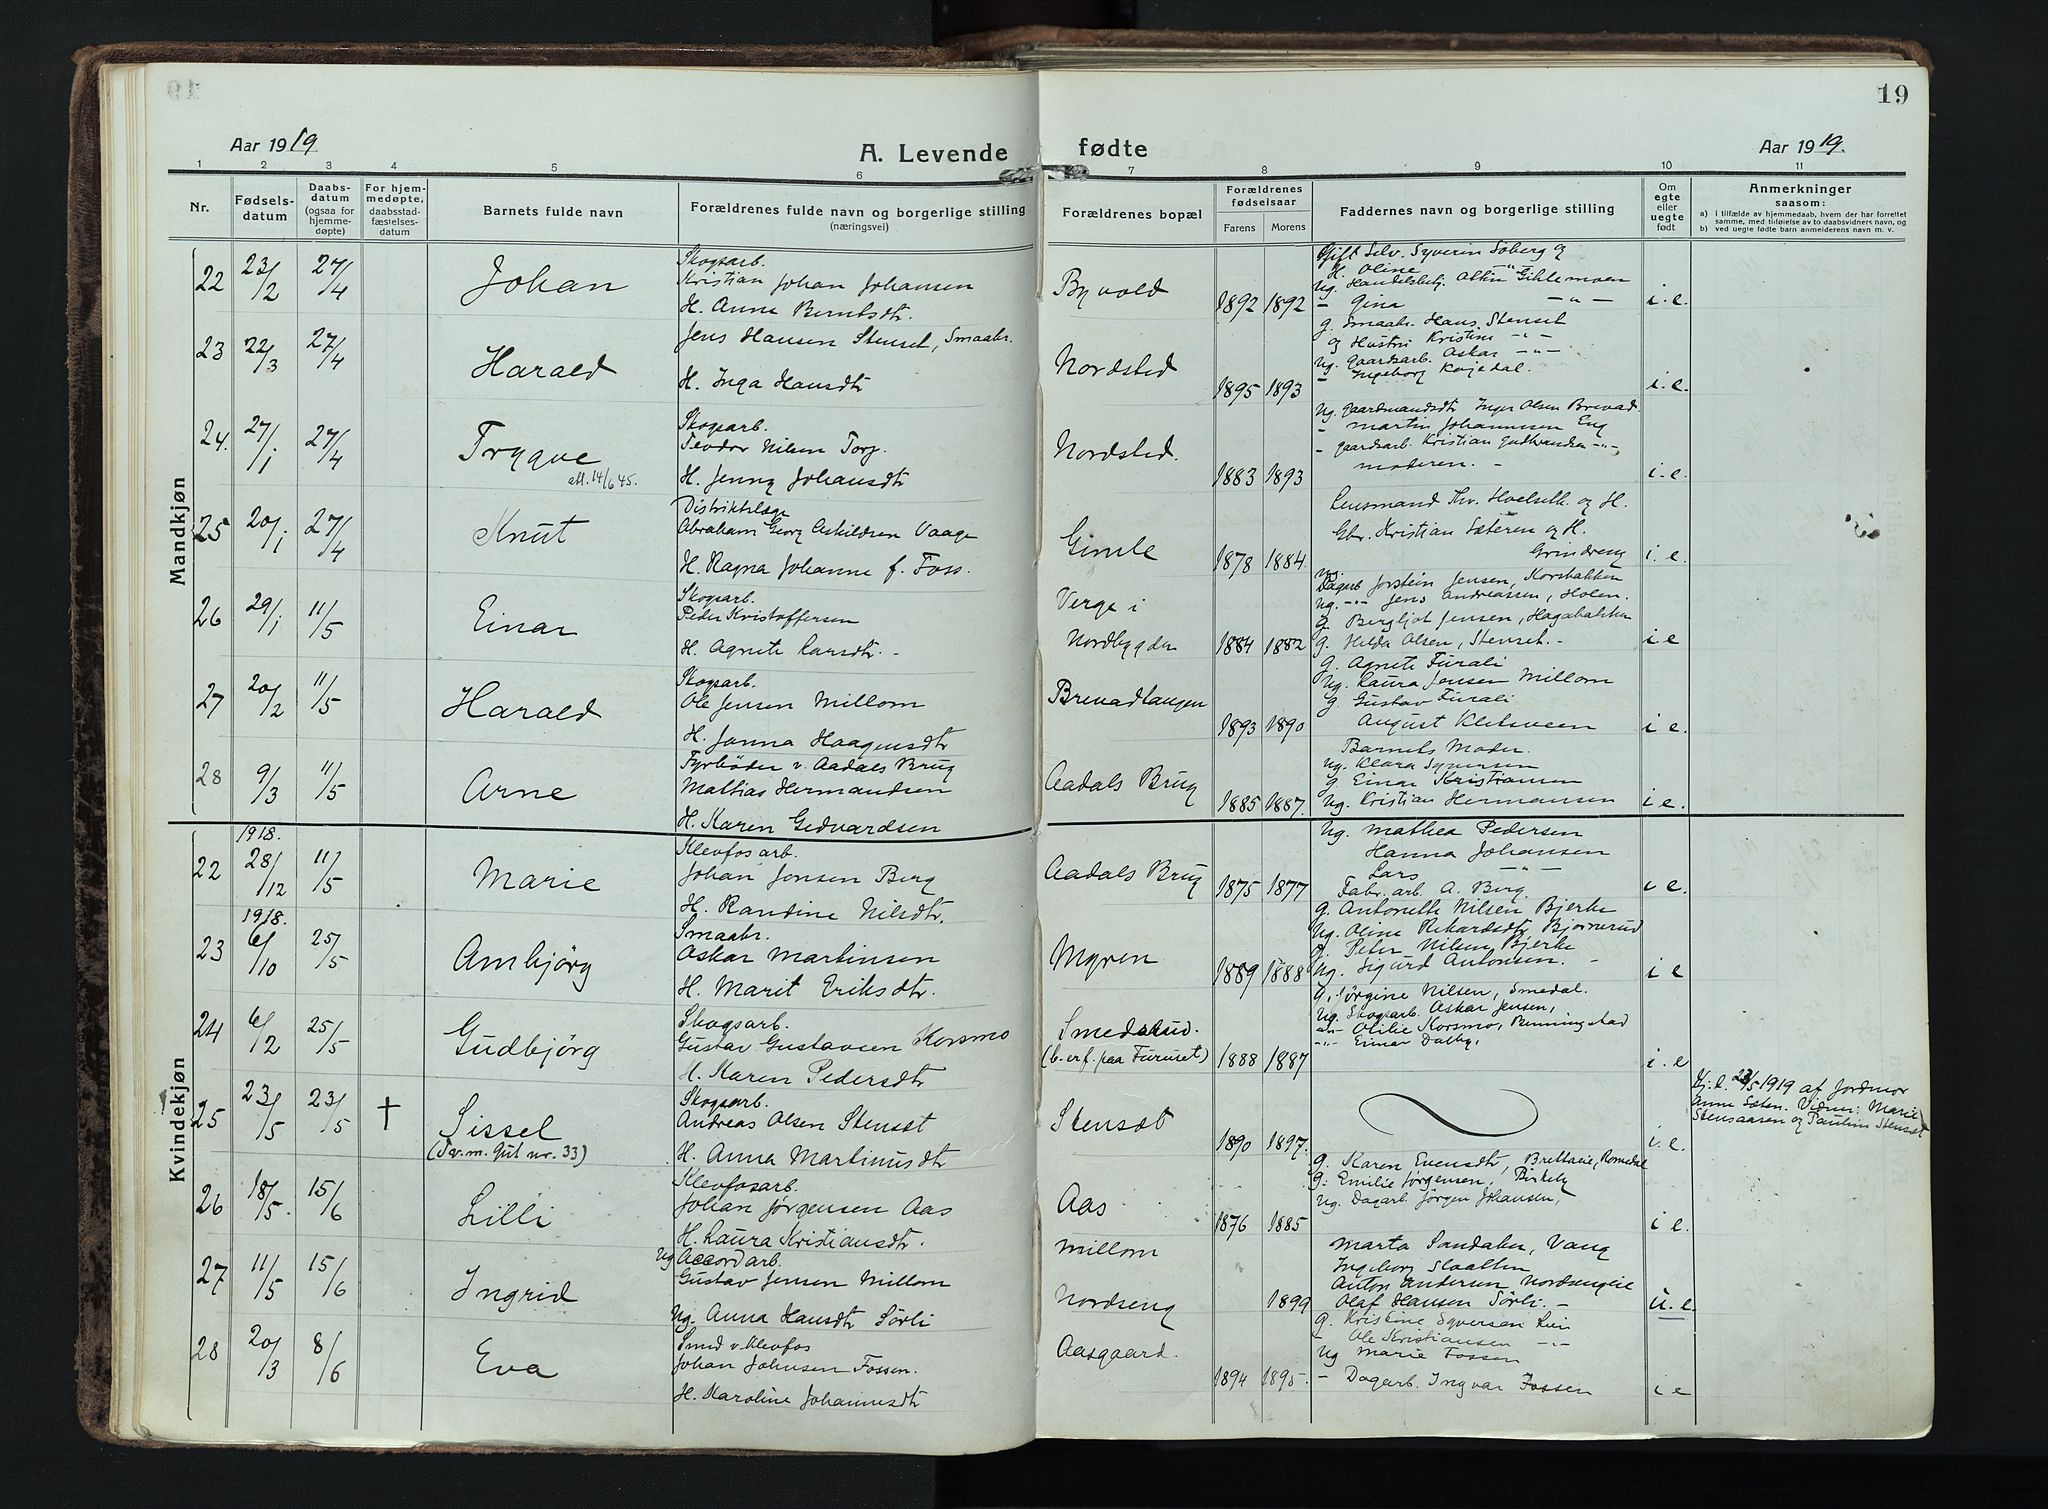 19
Aar 1919
A. Levende fødte
Aar 1919.
1 2 3 4 5 6 7 8 9 10 11
Nr.
Fødsels-
datum
Daabs-
datum
(ogsaa for
hjemme-
døpte)
For hjem-
medøpte,
daabsstad-
fæstelses-
datum
Barnets fulde navn
Forældrenes fulde navn og borgerlige stilling
(næringsvei)
Forældrenes bopæl
Forældrenes
fødselsaar
Farens Morens
Faddernes navn og borgerlige stilling
Om
egte
eller
uegte
født
Anmerkninger
saasom:
a) i tilfælde av hjemmedaab, hvem der har forrettet
samme, med tilføielse av to daabsvidners navn, og
b) ved uegte fødte barn anmelderens navn m. v.
Mandkjøn
22 23/2 27/4 Johan
Skogsarb.
Kristian Johan Johansen
H. Anne Berntsdtr.
Byvold 1892 1892
Gift Selv. Syverin Soberg og
H. Oline -"-
Ug. Handelsbetj.
- Gina -"-
i. e.
23 22/3 27/4 Harald
Jens Hansen Stenset, Smaabr.
H. Inga Hansdtr
Nordsted 1895 1893
g. Smaabr. Hans Stenset
og Hustru Kristine -"-
Ug. gaardsarb. Askar -"-
- Ingeborg
i. e.
24. 27/1 27/4 Trygve
att. 14/6 45.
Skogsarb.
Teodor Nilsen Torp.
H. Jenny Johansdtr
Nordsted. 1883 1893
Ug. gaardmandsdtr Inger Olsen Brevad.
- Martin Johannesen Eng
- gaardsarb. Kristian Gudbrandsen -"-
moderen. -
i. e.
25 20/1 27/4 Knut
Distriktslæge
Abraham Georg Askildsen Vaage
H. Ragna Johanne f. Foss.
Gimle 1878 1884.
Lensmand Thv. Hoelseth og H.
Gbr. Kristian Sæteren og H.
Grindreng
i. e.
26 29/1 11/5 Einar
Skogsarb.
Peder Kristoffersen
H. Agnete Larsdtr. -
Verge i
Nordbygden 1884 1882
Ug.
Dagarb Jorstein Jensen, Korsbakken
Ug. -"- Jens Andreassen, Holen.
g. Bergljot Jensen, Hagabakken
g. Helda Olsen, Stenset. -
i e
27 20/2 11/5 Harald
Skogsarb.
Ole Jensen Millom
H. Janna Haagensdtr
Brevadlangen 1893 1890
g. Agnete Furali
Ug. Laura Jensen Millom
g. Gustav Furali
August Kletsveen
i e.
28 9/3 11/5 Arne
Fyrbøder v. Aadals Brug
Mathias Hermandsen
H. Karen Gedvardsen
Aadals Brug 1885 1887.
Barnets Moder.
Ug. Klara Syversen
g. Einar Kristiansen
Ug. Kristian Hermansen
i e.
Kvindekjøn
22 1918. 28/12 11/5 Marie
Klevfosarb.
Johan Jensen Berg
H. Randine Nilsdtr.
Aadals Brug 1875 1877
Ug. Mathea Pedersen
Hanna Johansen
Lars -"-
Fabr. arb. A. Berg.
i e.
23 1918. 6/10 25/5 Ambjörg
Smaabr.
Askar Martinsen
H. Marit Eriksdtr.
Myren 1889 1888
g. Antonette Nilsen Bjerke
Ug. Oline Rikardsdtr Bjørnerud
g. Peter Nilsen Bjerke
Ug. Sigurd Antonsen. -
i e
24 6/2 25/5 Gudbjörg
Skogsarb.
Gustav Gustavsen Korsmo
H. Karen Pedersdtr
Smedsrud.
(b. er f. paa Furuset) 1888 1887
g. Jørgine Nilsen, Smedal.
Ug. Skogsarb. Askar Jensen,
-"- Otilie Korsmo, Benningstad
-"- Einar Dalby.
i. e
25 23/5 23/5 † Sissel
(Tv. m. Gut nr. 33)
Skogsarb.
Andreas Olsen Stenset
H. Anna Martinusdtr
Stenset 1890 1897.
i. e.
Hj. d. 23/5 1919 af Jordmor
Anne Sæten. Vidner: Marie
Stensaasen og Pauline Stenset
26 18/5. 15/6 Lilli
Klevfosarb.
Johan Jørgensen Aas
H. Laura Kristiansdtr.
Aas 1876 1885
g. Karen Evensdtr, Romedal
g. Emilie Jørgensen, Birkeby
Ug. Dagarb. Jörgen Johansen,
i e.
27 11/5 15/6 Ingrid
Ug Accordarb.
Gustav Jensen Millom
Ug. Anna Hansdtr Sörli
Millom
Nordseng 1899
Marta Sandaker, Vang
Ingeborg Slaatten
Anton Andersen Nordsengeie
Olaf Hansen Sörli. -
u. e.
28 20/3 8/6 Eva
Smed v. Klevfos
Johan Johnsen Fossen.
H. Karoline Johannesdtr
Aasgaard. 1894 1895.
g. Kristine Syversen Lie
- Ole Kristiansen -"-
Ug Marie Fossen
- Dagarb. Ingvar Fossen
i e